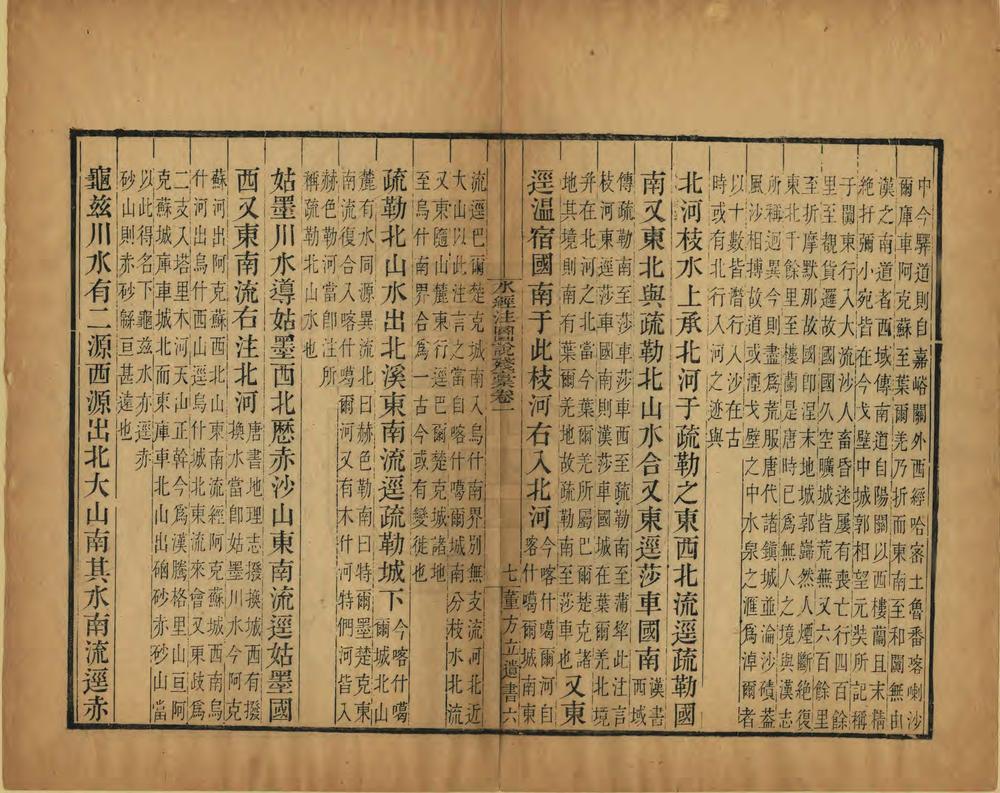 中今驛道則自嘉峪關外西經哈宻土魯番喀喇沙
爾庫車阿克蘇至葉爾羌乃折而東南至和闐無由
漢之南道者西域傳南道自陽關以西樓蘭且末精
絶扜彌小宛皆在今戈壁中城郭相望元奘所記稱
于闐東行入大流沙人畜昏迷屢有喪亡行四百餘
里至覩貨邏故國國久空曠城皆荒蕪又六百餘里
至折摩默那故國卽涅末地城郭巋然人煙斷絶復
東北千餘里至樓蘭是唐時已爲無人之境與漢志
所稱迥異今則盡爲荒服唐代諸鎭城並淪沙磧葢
風沙相摶故道戈壁之中水泉之滙爲淖爾者
以十數皆潛行入沙在古
時或有北行入河之迹與
北河枝水上承北河于疏勒之東西北流逕疏勒國
南又東北與疏勒北山水合又東逕莎車國南漢書西域
傳疏勒南至莎車莎車西至疏勒南至蒲犂此注言
枝河東逕莎車國南則漢莎車國城在葉爾羌北境
幷在北河之北當今葉爾羌所屬巴爾楚克諸
地其境則南有葉爾羌地故疏勒南至莎車也又東
逕温宿國南于此枝河右入北河今喀什噶爾河自
客什噶爾城南東
水經注圖說殘稾卷一
七 董方立遺書六
流逕巴爾楚克城南入烏什南界別無支流河北近
大山以此注言之當自喀什噶爾城南分枝水北流
又東隨山麓東行逕巴爾楚克城諸地
至烏什南界合爲一古今或有變徙也
疏勒北山水出北溪東南流逕疏勒城下今喀什噶爾城北山
麓有水同源異流北曰赫色勒南曰特爾墨楚克東
南流復合入喀什噶爾河又有木什河特們河皆入
赫色勒河當卽注所
稱疏勒北山水也
姑墨川水導姑墨西北歷赤沙山東南流逕姑墨國
西又東南流右注北河唐書地理志撥換城西有撥換水當卽姑墨川水今阿克
蘇河出阿克蘇西北山東南流經阿克蘇城西南烏
什河出烏什西山逕烏什城北東流來會又東歧爲
二支入塔里木河天山正幹今爲漢騰格里山亘阿
克蘇城庫車城北而東北庫車北山出硇砂赤砂山當
以此得名下龜兹水亦逕赤
砂山則赤砂緜亘甚遠也
龜兹川水有二源西源出北大山南其水南流逕赤